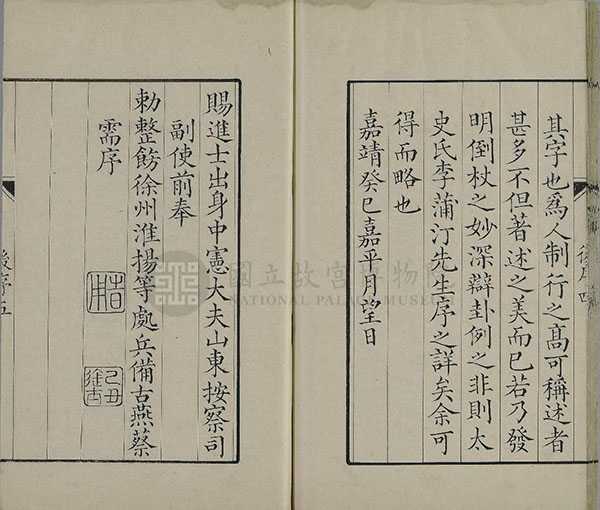 其字也爲人制行之髙可稱述者
甚多不但著述之美而已若乃發
明倒杖之妙深辯卦例之非則太
史氏李蒲汀先生序之詳矣余可
得而略也
嘉靖癸巳嘉平月望日
後序四
賜進士出身中憲大夫山東按察司
副使前奉
勅整飭徐州淮揚等處兵備古燕蔡
需序
後序五
國立故宮博物院
NATIONAL PALACE MUSEUM